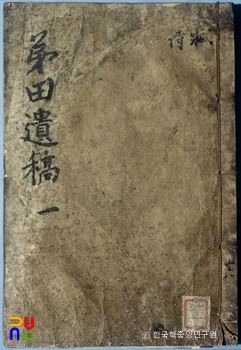 弟田遺稿 一
詩
ⓒ 한국학중앙연구원